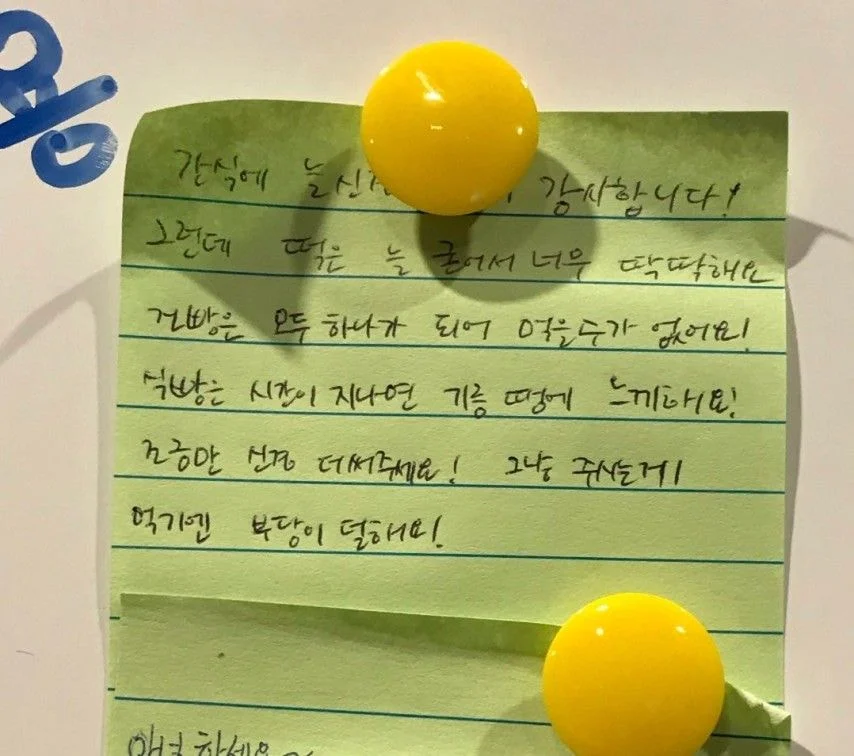 간식에 늘 신 감사합니다!
그런데 떡은 늘 굳어서 너무 딱딱해요
건빵은 모두 하나가 되어 먹을수가 없어요!
식빵은 시간이 지나면 기름 땜에 느끼해요!
조금만 신경 더써주세요! 그냥 주시는게
먹기엔 부담이 덜해요!
안녕하세요